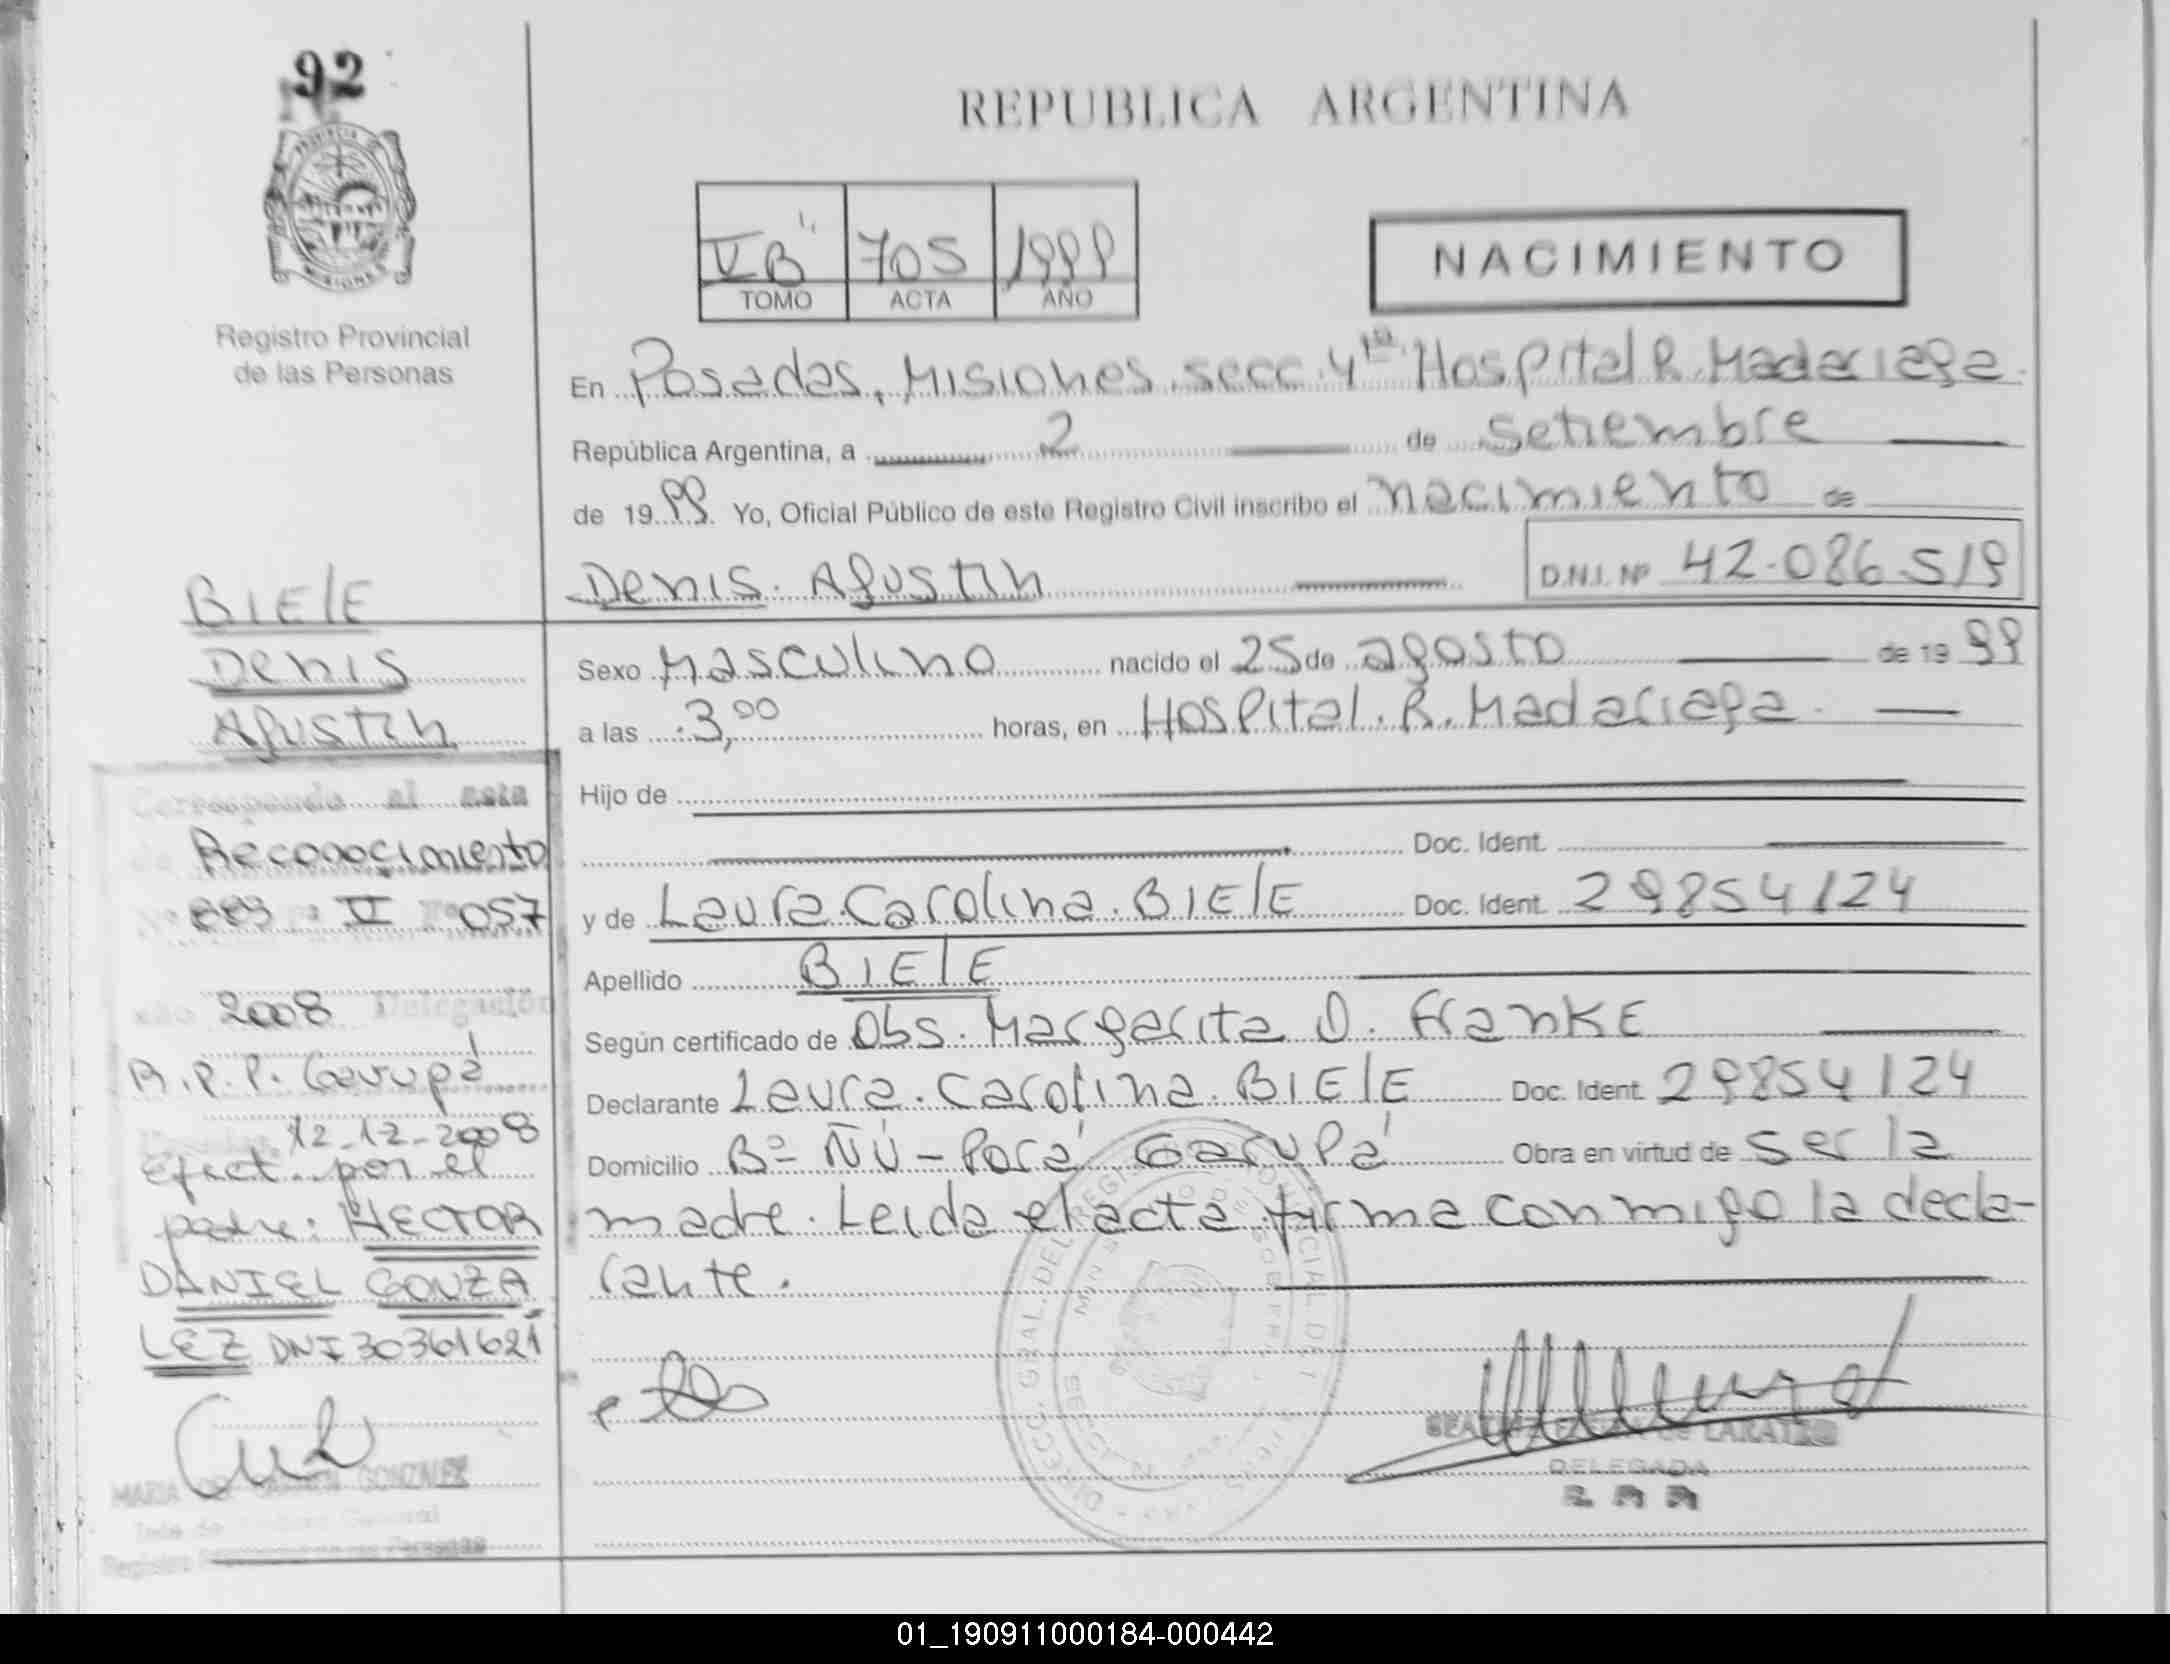 92
REPUBLICA ARGENTINA
PROVINCIA DE
MISIONES
Registro Provincial
de las Personas
V B" 705 1999
TOMO ACTA AÑO
NACIMIENTO
En Posadas, Misiones secc. 4ta Hospital R. Madariaga
República Argentina, a 2 de setiembre
de 1999 Yo, Oficial Público de este Registro Civil inscribo el nacimiento de
Denis Agustin
D.N.I. Nº 42.086.519
Sexo Masculino nacido el 25 de agosto de 1999
a las 3,00 horas, en Hospital R. Madariaga
Hijo de
Doc. Ident.
y de Laura Carolina BIElE Doc. Ident. 29854124
Apellido BIElE
Según certificado de Obs. Margarita O. FranKE
Declarante Laura Carolina BIElE Doc. Ident. 29854124
Domicilio Bº ÑÚ-Porá Garupá Obra en virtud de ser la
madre. Leida el acta firma conmigo la decla-
rante.
DELEGADA
BIElE
Denis
Agustin
Corresponde al acta
de Reconocimiento
Nº 883 Tº II Fº 057
año 2008 Delegación
R.P.P. Garupá
12-12-2008
Efect. por el
padre: HECTOR
DANIEL GONZA
LEZ DNI 30361621
MARIA DEL CARMEN GONZALEZ
01_190911000184-000442